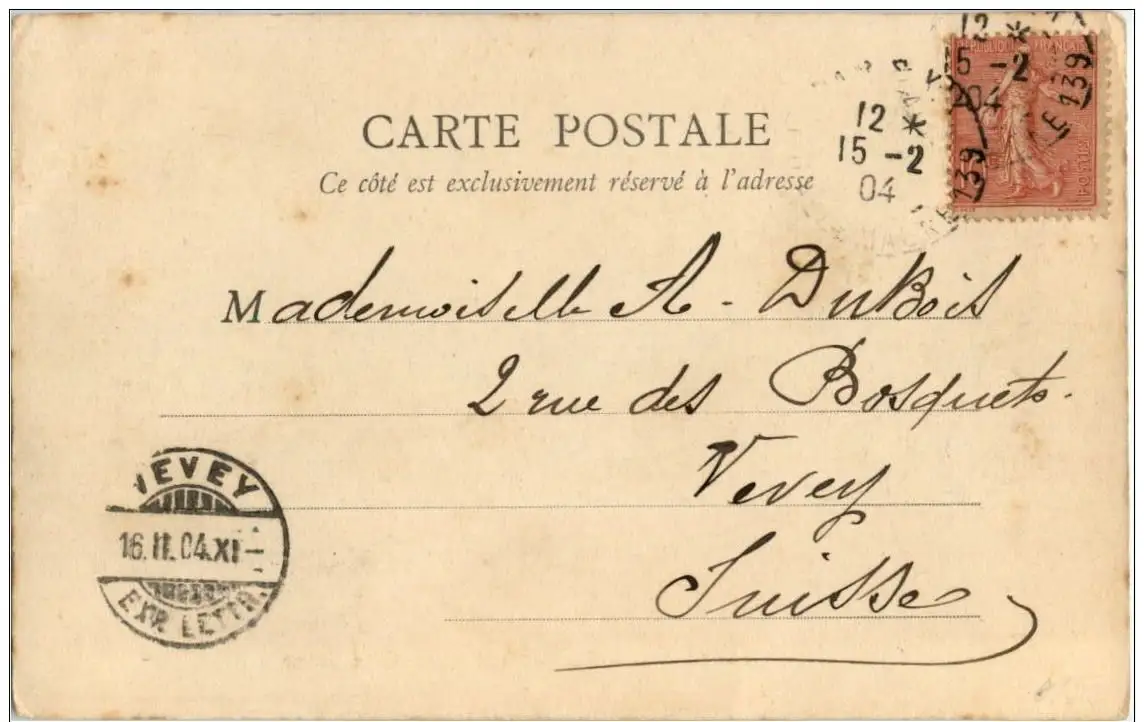 CARTE POSTALE
Ce côté est exclusivement réservé à l'adresse
RÉPUBLIQUE FRANÇAISE
POSTES
12 *
5 -2
04
139
12 *
15 -2
04
139
Mademoiselle A - DuBois
2 rue des Bosquets.
Vevey
Suisse
VEVEY
16.II.04.XI-
EXP. LETTR.